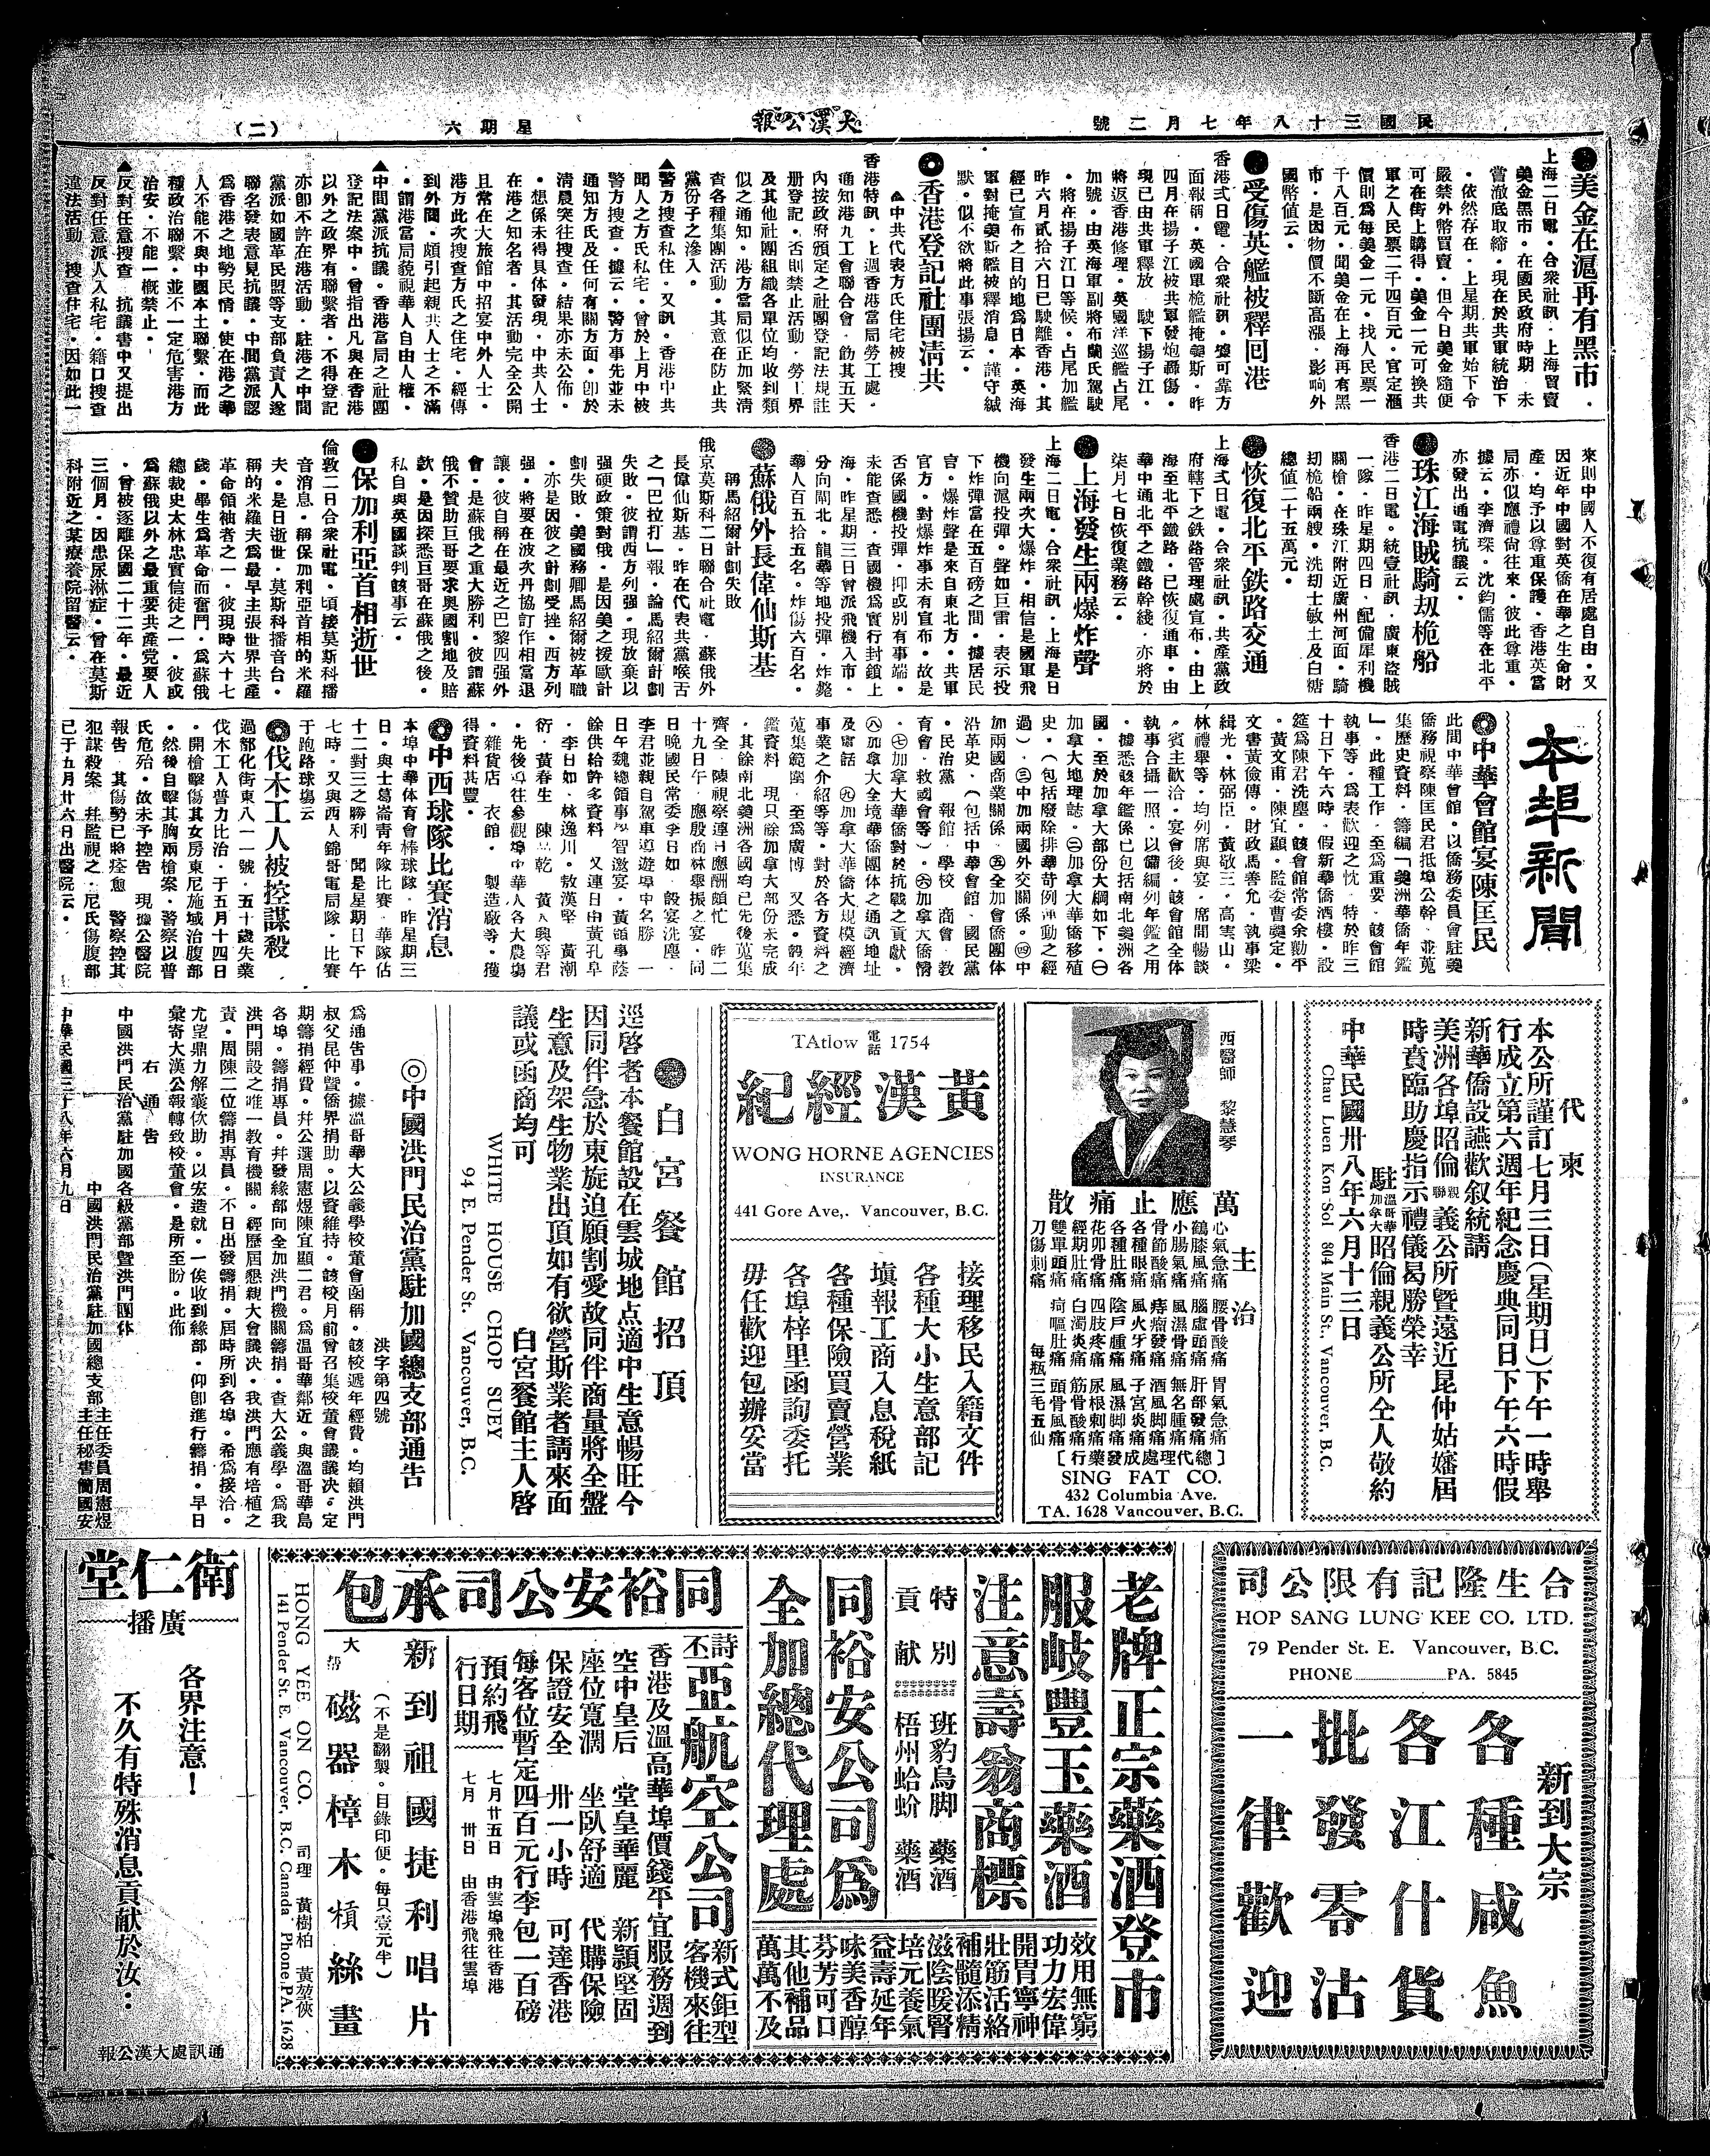 民國三十八年七月二號
大漢公報
星期六
(二)
美金在滬再有黑市
上海二日電・合衆社訊・上海買賣
美金黑市・在國民政府時期・未
當澈底取締・現在於共軍統治下
・依然存在・上星期共軍始下令
嚴禁外幣買賣・但今日美金隨便
可在街上購得・美金一元可換共
軍之人民票二千四百元・官定滙
價則爲每美金一元・找人民票一
千八百元・聞美金在上海再有黑
市・是因物價不斷高漲・影响外
國幣値云・
受傷英艦被釋回港
香港弍日電・合衆社訊・據可靠方
面報稱・英國單桅艦掩美斯・昨
四月在揚子江被共軍發炮轟傷・
現已由共軍釋放・駛下揚子江・
將返香港修理・英國洋巡艦占尾
加號・由英海軍副將布蘭氏駕駛
・將在揚子江口等候・占尾加艦
昨六月貳拾六日已駛離香港・其
經已宣布之目的地爲日本・英海
軍對掩美斯艦被釋消息・謹守緘
默・似不欲將此事張揚云・
香港登記社團清共
▲中共代表方氏住宅被搜
香港特訊・上週香港當局勞工處・
通知港九工會聯合會・飭其五天
內按政府頒定之社團登記法規註
册登記・否則禁止活動・勞工界
及其他社團組織各單位均收到類
似之通知・港方當局似正加緊清
查各種集團活動・其意在防止共
黨份子之滲入・
▲警方搜查私住・又訊・香港中共
聞人之方氏私宅・曾於上月中被
警方搜查・據云・警方事先並未
通知方氏及任何有關方面・卽於
清晨突往搜查・結果亦未公佈・
・想係未得具体發現・中共人士
在港之知名者・其活動完全公開
且常在大旅館中招宴中外人士・
港方此次搜查方氏之住宅・經傳
到外間・頗引起親共人士之不滿
・謂港當局貌視華人自由人權・
▲中間黨派抗議・香港當局之社團
登記法案中・曾指出凡與在香港
以外之政界有聯繫者・不得登記
亦卽不許在港活動・駐港之中間
黨派如國革民盟等支部負責人遂
聯名發表意見抗議・中間黨派認
爲香港之地勢民情・使在港之華
人不能不與中國本土聯繫・而此
種政治聯繫・並不一定危害港方
治安・不能一概禁止・
▲反對任意搜查・抗議書中又提出
反對任意派人入私宅・籍口搜查
違法活動・搜查住宅・因如此一
來則中國人不復有居處自由・又
因近年中國對英僑在華之生命財
產・均予以尊重保護・香港英當
局亦似應禮尙往來・彼此尊重・
據云・李濟琛・沈鈞儒等在北平
亦發出通電抗議云・
珠江海賊騎刧桅船
香港二日電・統壹社訊・廣東盜賊
一隊・昨星期四日・配備犀利機
關槍・在珠江附近廣州河面・騎
刧桅船兩艘・洗刧士敏土及白糖
總値二十五萬元・
恢復北平鉄路交通
上海弍日電・合衆社訊・共產黨政
府轄下之鉄路管理處宣布・由上
海至北平鐵路・已恢復通車・由
華中通北平之鐵路幹綫・亦將於
柒月七日恢復業務云・
上海發生兩爆炸聲
上海二日電・合衆社訊・上海是日
發生兩次大爆炸・相信是國軍飛
機向滬投彈・聲如巨雷・表示投
下炸彈當在五百磅之間・據居民
官・爆炸聲是來自東北方・共軍
官方・對爆炸事未有宣布・故是
否係國機投彈・抑或別有事端・
未能查悉・查國機爲實行封鎖上
海・昨星期三日曾派飛機入市・
分向閘北・龍華等地投彈・炸斃
華人百五拾五名・炸傷六百名・
蘇俄外長偉仙斯基
稱馬紹爾計劃失敗
俄京莫斯科二日聯合社電・蘇俄外
長偉仙斯基・昨在代表共黨喉舌
之「巴拉打」報・論馬紹爾計劃
失敗・彼謂西方列强・現放棄以
强硬政策對俄・是因美之援歐計
劃失敗・美國務卿馬紹爾被革職
・亦是因彼之計劃受挫・西方列
强・將要在波次丹協訂作相當退
讓・彼自稱在最近之巴黎四强外
會・是蘇俄之重大勝利・彼謂蘇
俄不贊助巨哥要求奧國割地及賠
款・是因探悉巨哥在蘇俄之後・
私自與英國談判該事云・
保加利亞首相逝世
倫敦二日合衆社電・頃接莫斯科播
音消息・稱保加利亞首相的米羅
夫・是日逝世・莫斯科播音台・
稱的米羅夫爲最早主張世界共產
革命領袖者之一・彼現時六十七
歲・畢生爲革命而奮鬥・爲蘇俄
總裁史太林忠實信徒之一・彼或
爲蘇俄以外之最重要共產党要人
・曾被逐離保國二十二年・最近
三個月・因患尿淋症・曾在莫斯
科附近之某療養院留醫云・
本埠新聞
中華會館宴陳匡民
此間中華會館・以僑務委員會駐美
僑務視察陳匡民君抵埠公幹・並蒐
集歷史資料・籌編「美洲華僑年鑑
」・此種工作・至爲重要・該會館
執事等・爲表歡迎之忱・特於昨三
十日下午六時・假新華僑酒樓・設
筵爲陳君洗塵・該會館常委余勳平
・黃文甫・陳宜顯・監委曹奠定・
文書黃儉傳・財政馬善允・執事梁
緝光・林弼臣・黃敬三・高雲山・
林禮舉等・均列席與宴・席間暢談
・賓主歡洽・宴會後・該會館全体
執事合攝一照・以備編列年鑑之用
・據悉該年鑑係已包括南北美洲各
國・至於加拿大部份大綱如下・㊀
加拿大地理誌・㊁加拿大華僑移殖
史・(包括廢除排華苛例運動之經
過)・㊂中加兩國外交關係・㊃中
加兩國商業關係・㊄全加會僑團体
沿革史・(包括中華會館・國民黨
・民治黨・報館・學校・商會・敎
育會・救國會等)・㊅加拿大僑情
・㊆加拿大華僑對於抗戰之貢獻・
㊇加拿大全境華僑團体之通訊地址
及電話・㊈加拿大華僑大規模經濟
事業之介紹等等・對於各方資料之
蒐集範圍・至爲廣博・又悉・該年
鑑資料・現只餘加拿大部份未完成
・其餘南北美洲各國均已先後蒐集
齊全・陳視察連日應酬頗忙・昨二
十九日午・應殷商林舉振之宴・同
日晚國民常委李日如・設宴洗塵・
李君並親自駕車導遊埠中名勝・一
日午魏總領事學智邀宴・黃領事蔭
餘供給許多資料・又連日由黃孔阜
・李日如・林逸川・敖漢堅・黃潮
衍・黃春生・陳孟乾・黃入興等君
・先後導往參觀埠中華人各大農塲
・雜貨店・衣館・製造廠等・獲
得資料甚豐・
中西球隊比賽消息
本埠中華体育會棒球隊・昨星期三
日・與士葛崙青年隊比賽・華隊佔
十二對三之勝利・聞是星期日下午
七時・又與西人錦哥電局隊・比賽
于跑路球塲云
伐木工人被控謀殺
過部化街東八一一號・五十歲失業
伐木工人普力比治・于五月十四日
・開槍擊傷其女房東尼施域治腹部
・然後自擊其胸兩槍案・警察以普
氏危殆・故未予控告・現據公醫院
報告・其傷勢已將痊愈・警察控其
犯謀殺案・幷監視之・尼氏傷腹部
已于五月卅六日出醫院云・
代柬
本公所謹訂七月三日(星期日)下午一時舉
行成立第六週年紀念慶典同日下午六時假
新華僑設讌歡叙統請
美洲各埠昭倫親聯義公所暨遠近昆仲姑嬸屆
時賁臨助慶指示禮儀曷勝榮幸
駐加拿大溫哥華昭倫親義公所仝人敬約
中華民國卅八年六月十三日
Chau Luen Kon Sol 304 Main St., Vancouver, B.C.
西醫師 黎慧琴
萬應止痛散
主治
心氣急痛 腰骨酸痛 胃氣急痛
鶴膝風痛 腦虛頭痛 肝部發痛
小腸氣痛 風濕骨痛 無名腫痛
骨節酸痛 痔瘡發痛 酒風脚痛
各種眼痛 風火牙痛 子宮炎痛
各種肚痛 陰戶腫痛 風濕脚痛
花卯骨痛 四肢疼痛 尿根刺痛
經期肚痛 白濁炎痛 筋骨酸痛
雙單頭痛 疴嘔肚痛 頭骨風痛
刀傷刺痛 每瓶三毛五仙
[總代理處成發藥行]
SING FAT CO.
432 Columbia Ave.
TA. 1628 Vancouver, B.C.
TAtlow 電話 1754
黃漢經紀
WONG HORNE AGENCIES
INSURANCE
441 Gore Ave,. Vancouver, B.C.
接理移民入籍文件
各種大小生意部記
塡報工商入息稅紙
各種保險買賣營業
各埠梓里函詢委托
毋任歡迎包辦妥當
白宮餐館招頂
逕啓者本餐館設在雲城地点適中生意暢旺今
因同伴急於東旋迫願割愛故同伴商量將全盤
生意及架生物業出頂如有欲營斯業者請來面
議或函商均可 白宮餐館主人啓
WHITE HOUSE CHOP SUEY
94 E. Pender St. Vancouver, B.C.
◎中國洪門民治黨駐加國總支部通告
洪字第四號
爲通告事・據溫哥華大公義學校董會函稱・該校遞年經費・均賴洪門
叔父昆仲曁僑界捐助・以資維持・該校月前曾召集校董會議議決・定
期籌捐經費・幷公選周憲煜陳宜顯二君・爲溫哥華鄰近・與溫哥華島
各埠・籌捐專員・幷發緣部向全加洪門機關籌捐・查大公義學・爲我
洪門開設之唯一敎育機關・經歷屆懇親大會議决・我洪門應有培植之
責・周陳二位籌捐專員・不日出發籌捐・屆時所到各埠・希爲接洽・
尤望鼎力解囊佽助・以宏造就・一俟收到緣部・仰卽進行籌捐・早日
彙寄大漢公報轉致校董會・是所至盼・此佈
右通告
中國洪門民治黨駐加國各級黨部暨洪門團体
中國洪門民治黨駐加國總支部 主任委員周憲煜
主任秘書簡國安
中華民國三十八年六月九日
合生隆記有限公司
HOP SANG LUNG KEE CO. LTD.
79 Pender St. E. Vancouver, B.C.
PHONE PA. 5845
新到大宗
各種咸魚
各江什貨
批發零沽
一律歡迎
老牌正宗藥酒登市
服岐豐玉藥酒
注意壽翁商標
特別貢献
班豹烏脚藥酒
梧州蛤蚧藥酒
同裕安公司爲
全加總代理處
效用無窮
功力宏偉
開胃寧神
壯筋活絡
補髓添精
滋陰暖腎
培元養氣
益壽延年
味美香醇
芬芳可口
其他補品
萬萬不及
同裕安公司承包
詩丕亞航空公司新式鉅型客機來往
香港及溫高華埠價錢平宜服務週到
空中皇后 堂皇華麗 新頴堅固
座位寬濶 坐臥舒適 代購保險
保證安全 卅一小時 可達香港
每客位暫定四百元行李包一百磅
預約飛行日期
七月廿五日 由雲埠飛往香港
七月 卅日 由香港飛往雲埠
新到祖國捷利唱片
(不是翻製・目錄印便・每只壹元半)
大帮磁器樟木櫃絲畫
HONG YEE ON CO. 司理 黃樹柏 黃堃俠
141 Pender St. E. Vancouver, B.C. Canada Phone, PA. 1628
衛仁堂
廣播
各界注意!
不久有特殊消息貢献於汝‥
通訊處大漢公報